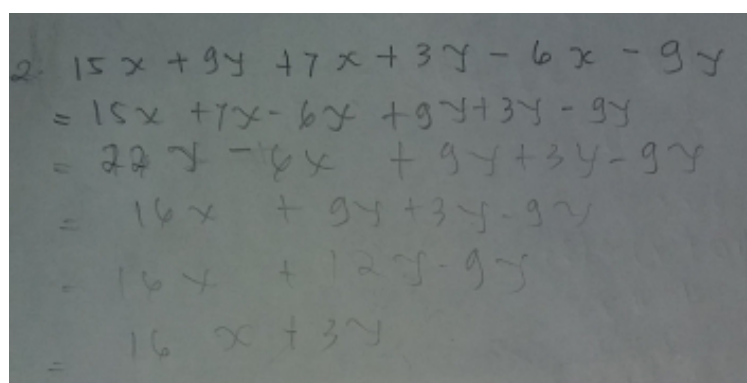 2. 15x + 9y + 7x + 3y - 6x - 9y
= 15x + 7x - 6x + 9y + 3y - 9y
= 22x - 6x + 9y + 3y - 9y
= 16x + 9y + 3y - 9y
= 16x + 12y - 9y
= 16x + 3y